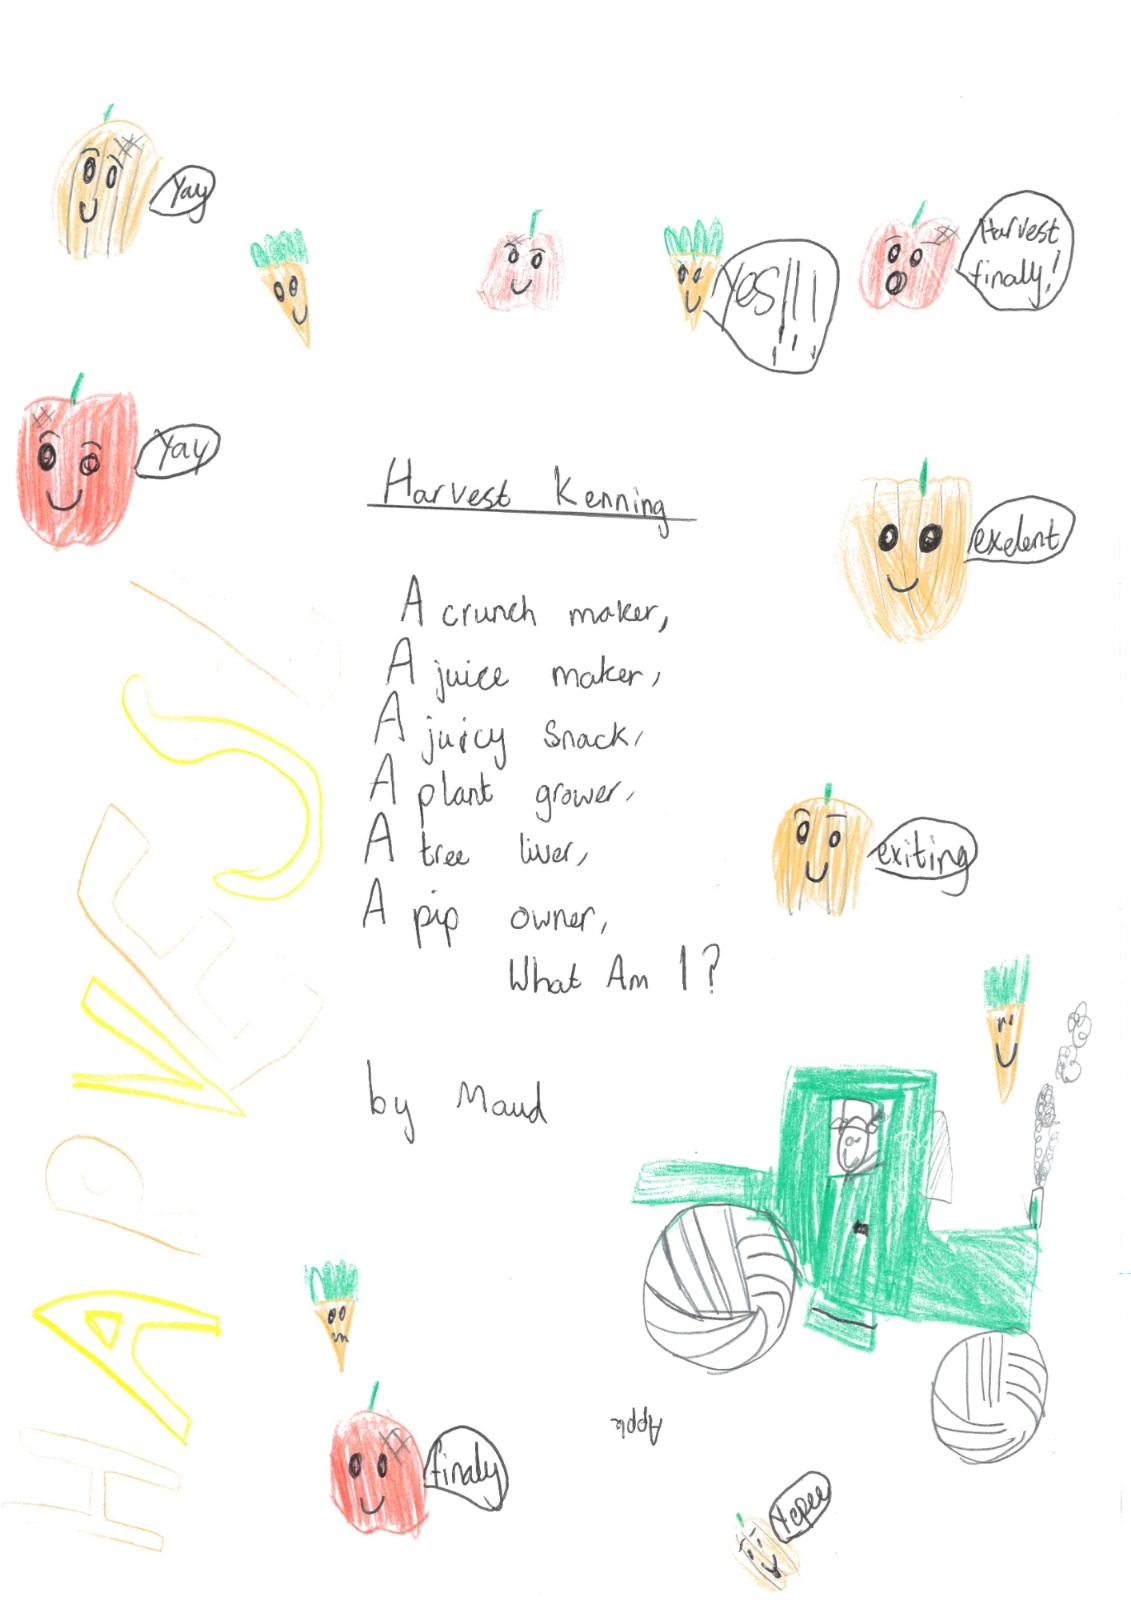 Yay
Yes!!!
Harvest
finally!
Yay
Harvest Kenning
exelent
A crunch maker,
A juice maker,
A juicy snack,
A plant grower,
A tree liver,
A pip owner,
What Am I?
exiting
by Maud
HARVEST
Apple
finaly
Yepee